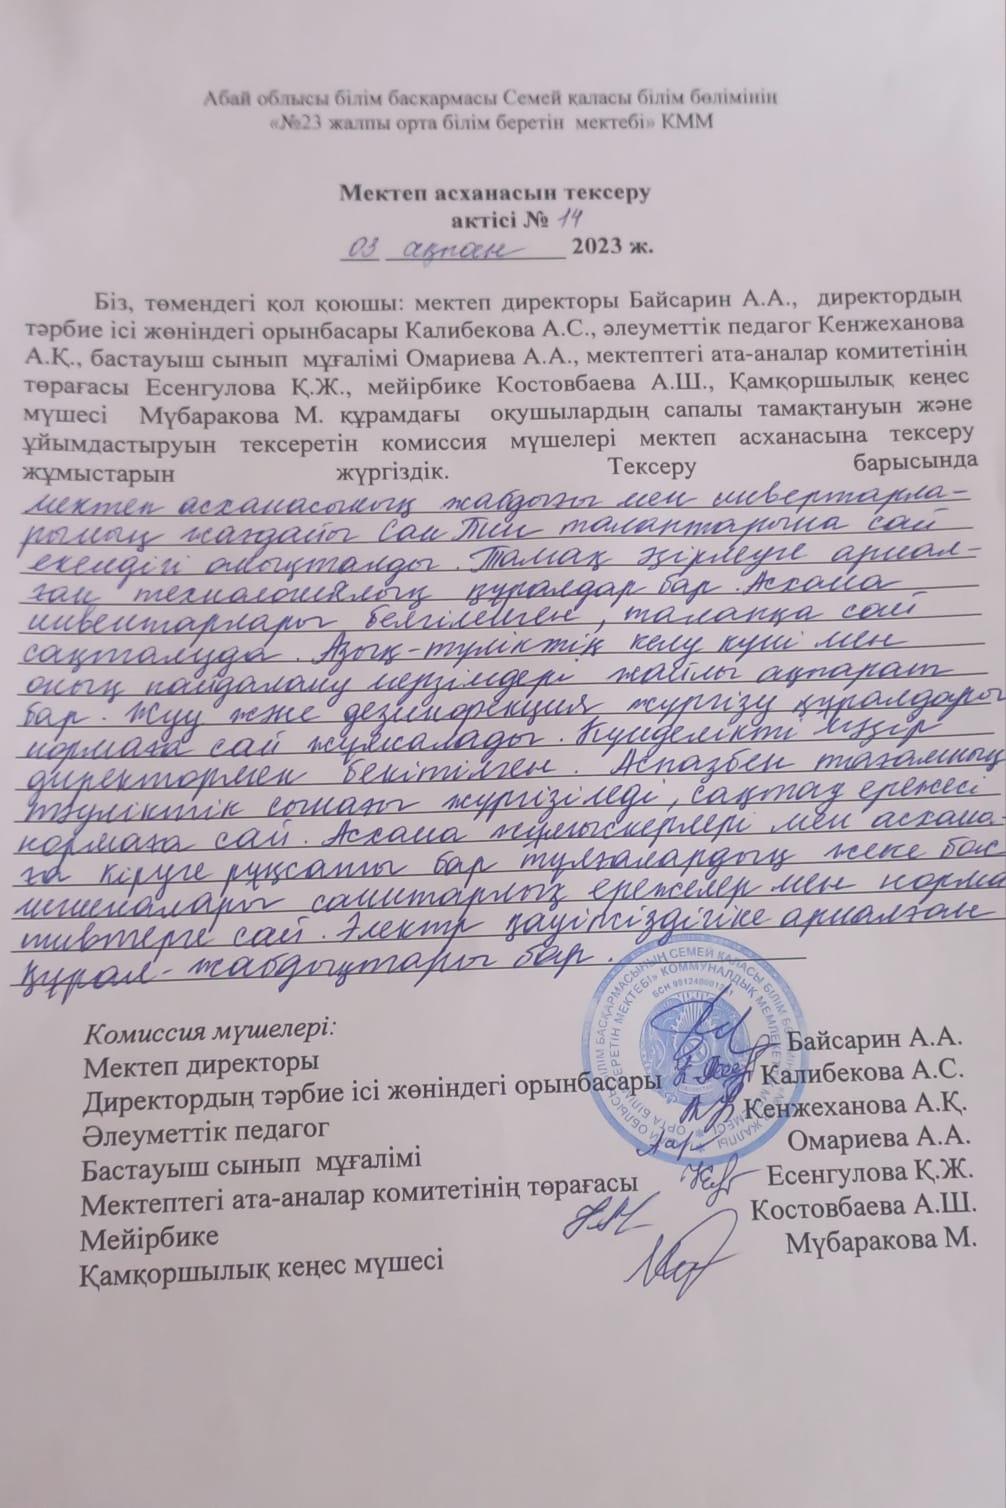 Абай облысы білім басқармасы Семей қаласы білім бөлімінің
«№23 жалпы орта білім беретін мектебі» КММ
Мектеп асханасын тексеру
актісі № 14
03 ақпан 2023 ж.
Біз, төмендегі қол қоюшы: мектеп директоры Байсарин А.А., директордың
тәрбие ісі жөніндегі орынбасары Калибекова А.С., әлеуметтік педагог Кенжеханова
А.Қ., бастауыш сынып мұғалімі Омариева А.А., мектептегі ата-аналар комитетінің
төрағасы Есенгулова Қ.Ж., мейірбике Костовбаева А.Ш., Қамқоршылық кеңес
мүшесі Мүбаракова М. құрамдағы оқушылардың сапалы тамақтануын және
ұйымдастыруын тексеретін комиссия мүшелері мектеп асханасына тексеру
жұмыстарын жүргіздік. Тексеру барысында
мектеп асханасының жабдығы мен инвертарла-
рының жағдайы Сан Пин талаптарына сай
екендігі анықталды. Тамақ әзірлеуге арнал-
ған технологиялық құралдар бар. Асхана
инвентарлары белгіленген, талапқа сай
сақталуда. Азық-түліктің келу күні мен
оның пайдалану мерзімдері жайлы ақпарат
бар. Жуу және дезинфекция жүргізу құралдары
нормаға сай жұмсалады. Күнделікті мәзір
директормен бекітілген. Аспазбен тағамның
тәуліктік сынағы жүргізіледі, сақтау ережесі
нормаға сай. Асхана жұмыскерлері мен асхана-
ға кіруге рұқсаты бар тұлғалардың жеке
санитарлық ережелер мен норма
тивтерге сай. Электр қауіпсіздігіне арналған
құрал-жабдықтары бар.
Комиссия мүшелері:
Мектеп директоры Байсарин А.А.
Директордың тәрбие ісі жөніндегі орынбасары Калибекова А.С.
Әлеуметтік педагог Кенжеханова А.Қ.
Бастауыш сынып мұғалімі Омариева А.А.
Мектептегі ата-аналар комитетінің төрағасы Есенгулова Қ.Ж.
Мейірбике Костовбаева А.Ш.
Қамқоршылық кеңес мүшесі Мүбаракова М.